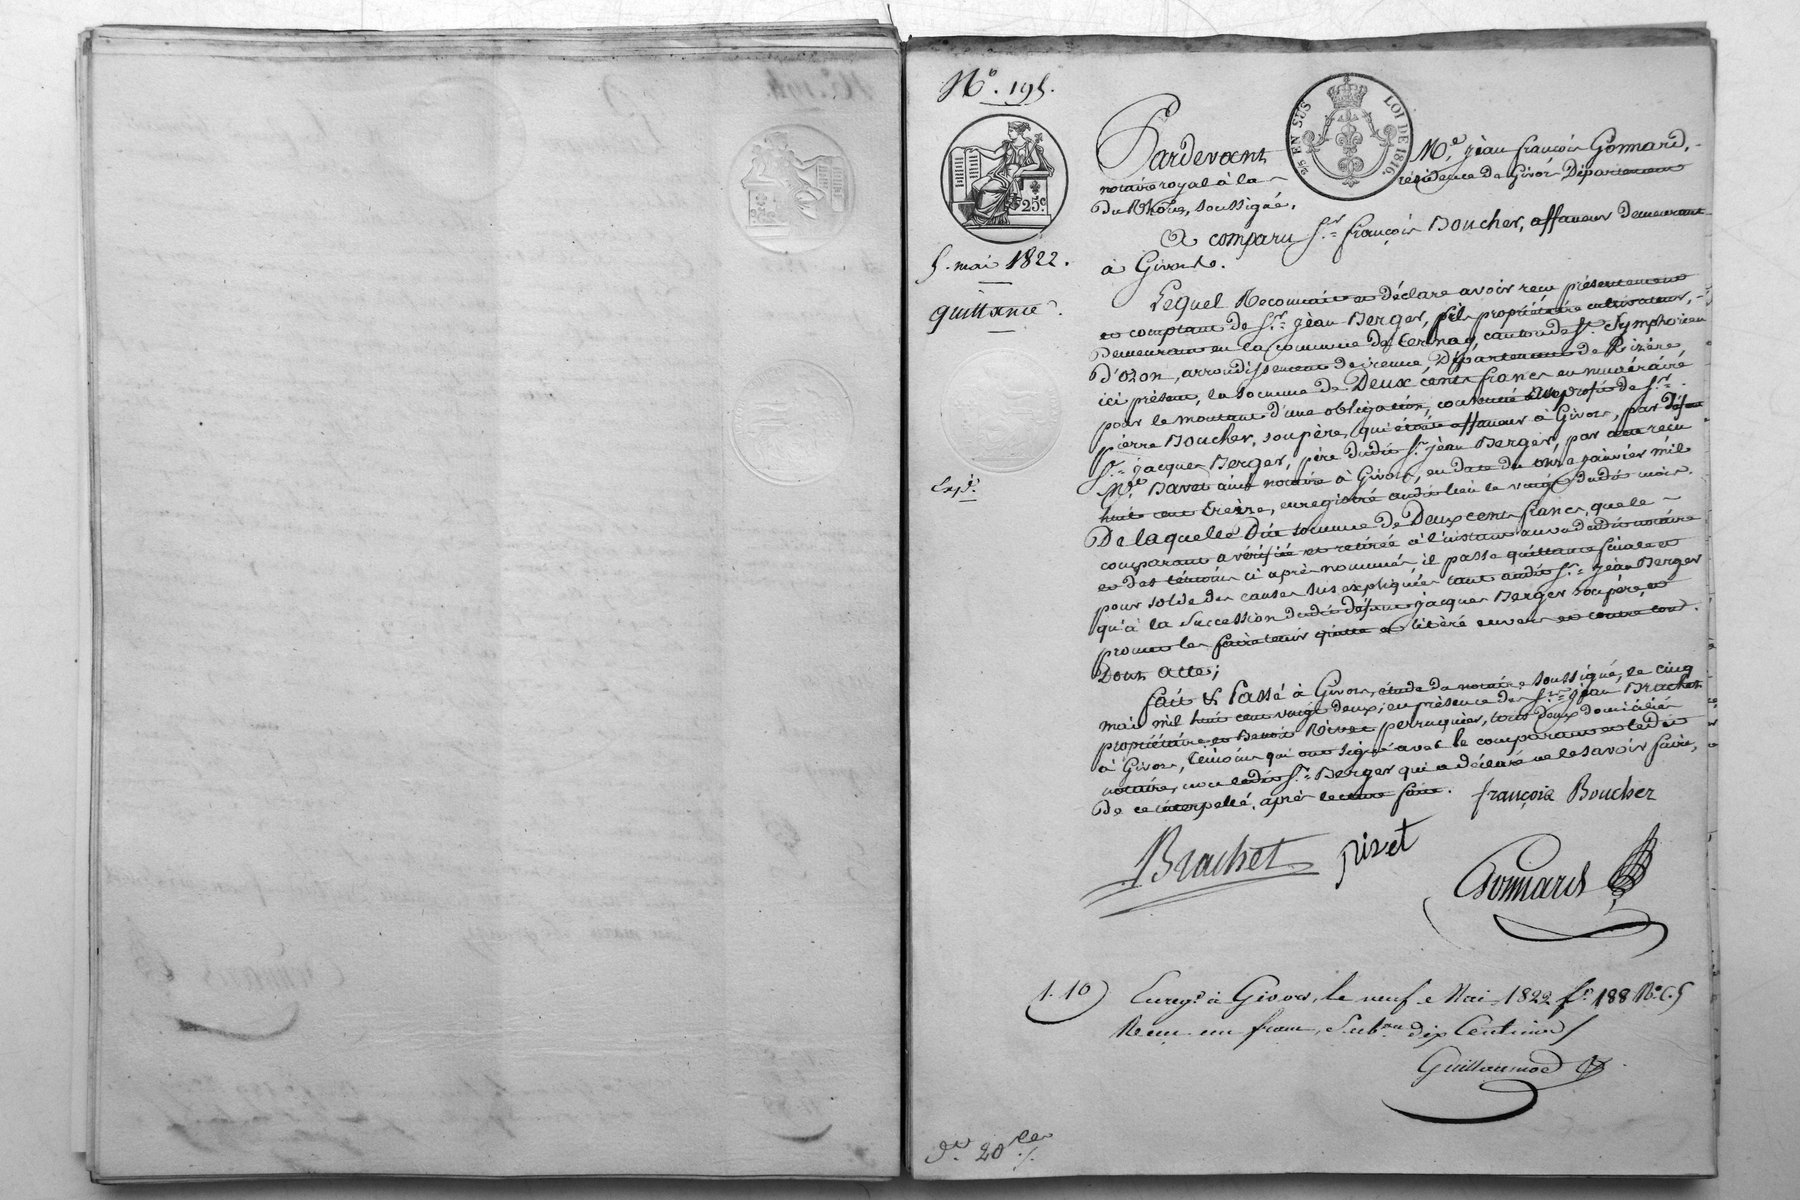 N.º 195.
25 EN SUS
LOI DE 1816.
25 c
5. mai 1822.
quittance.
Exp.é
Pardevant M.e jean françois Gonnard,
notaire royal à la résidence de Givors Département
du Rhône, soussigné.
a comparu S.r françois Boucher, affaneur demeurant
à Givors.
Lequel Reconnait et déclare avoir reçu présentement
et comptant de S.r jean Berger, fils propriétaire cultivateur,
demeurant en la commune de ternay, canton de S.t Symphorien
d'ozon, arrondissement de vienne, Département de L'izère
ici présent, la somme de Deux cents francs en numéraire
pour le montant d'une obligation, au profit de S.r
pierre Boucher, son père, qui était affaneur à Givors, par défunt
S.r jacques Berger, père dudit S.r jean Berger, par acte reçu
M.e notaire à Givors, en date du onze janvier mil
huit cent treize, enregistré audit lieu le vingt dudit mois.
De laquelle dite somme de Deux cents francs, que le
comparant a vérifiée et retirée à l'instant au vu dudit notaire
et des témoins ci après nommés, il passe quittance finale et
pour solde des causes sus expliquées tant audit S.r jean Berger
qu'à la succession dudit défunt jacques Berger son père, et
promet les faire tenir quitte et libéré envers et contre tous.
Dont acte;
fait & Passé à Givors, étude du notaire soussigné, le cinq
mai mil huit cent vingt deux; en présence des S.rs jean Brachet
propriétaire et Benoit Rivet perruquier, tous deux domiciliés
à Givors, témoins qui ont signé avec le comparant et ledit
notaire, non ledit S.r Berger qui a déclaré ne le savoir faire,
de ce interpellé, après lecture faite. françois Boucher
Brachet rivet
Gonnard
1.10) Enreg.é à Givors, le neuf Mai 1822 f.o 188 R.o C. 5
Reçu un franc, Sub.on dix Centimes
Guillaumod
20